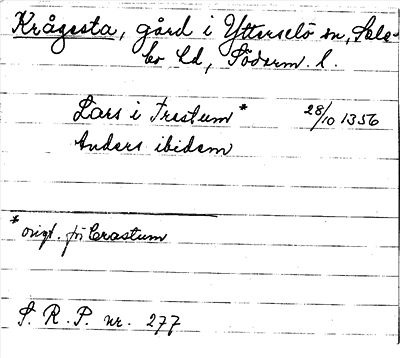 Krågesta, gård i Ytterselö sn, Sele-
bo hd, Söderm. l.
Lars i Frestum* 28/10 1356
Anders ibidem
* origt. för Crastum
S. R. P. nr. 277